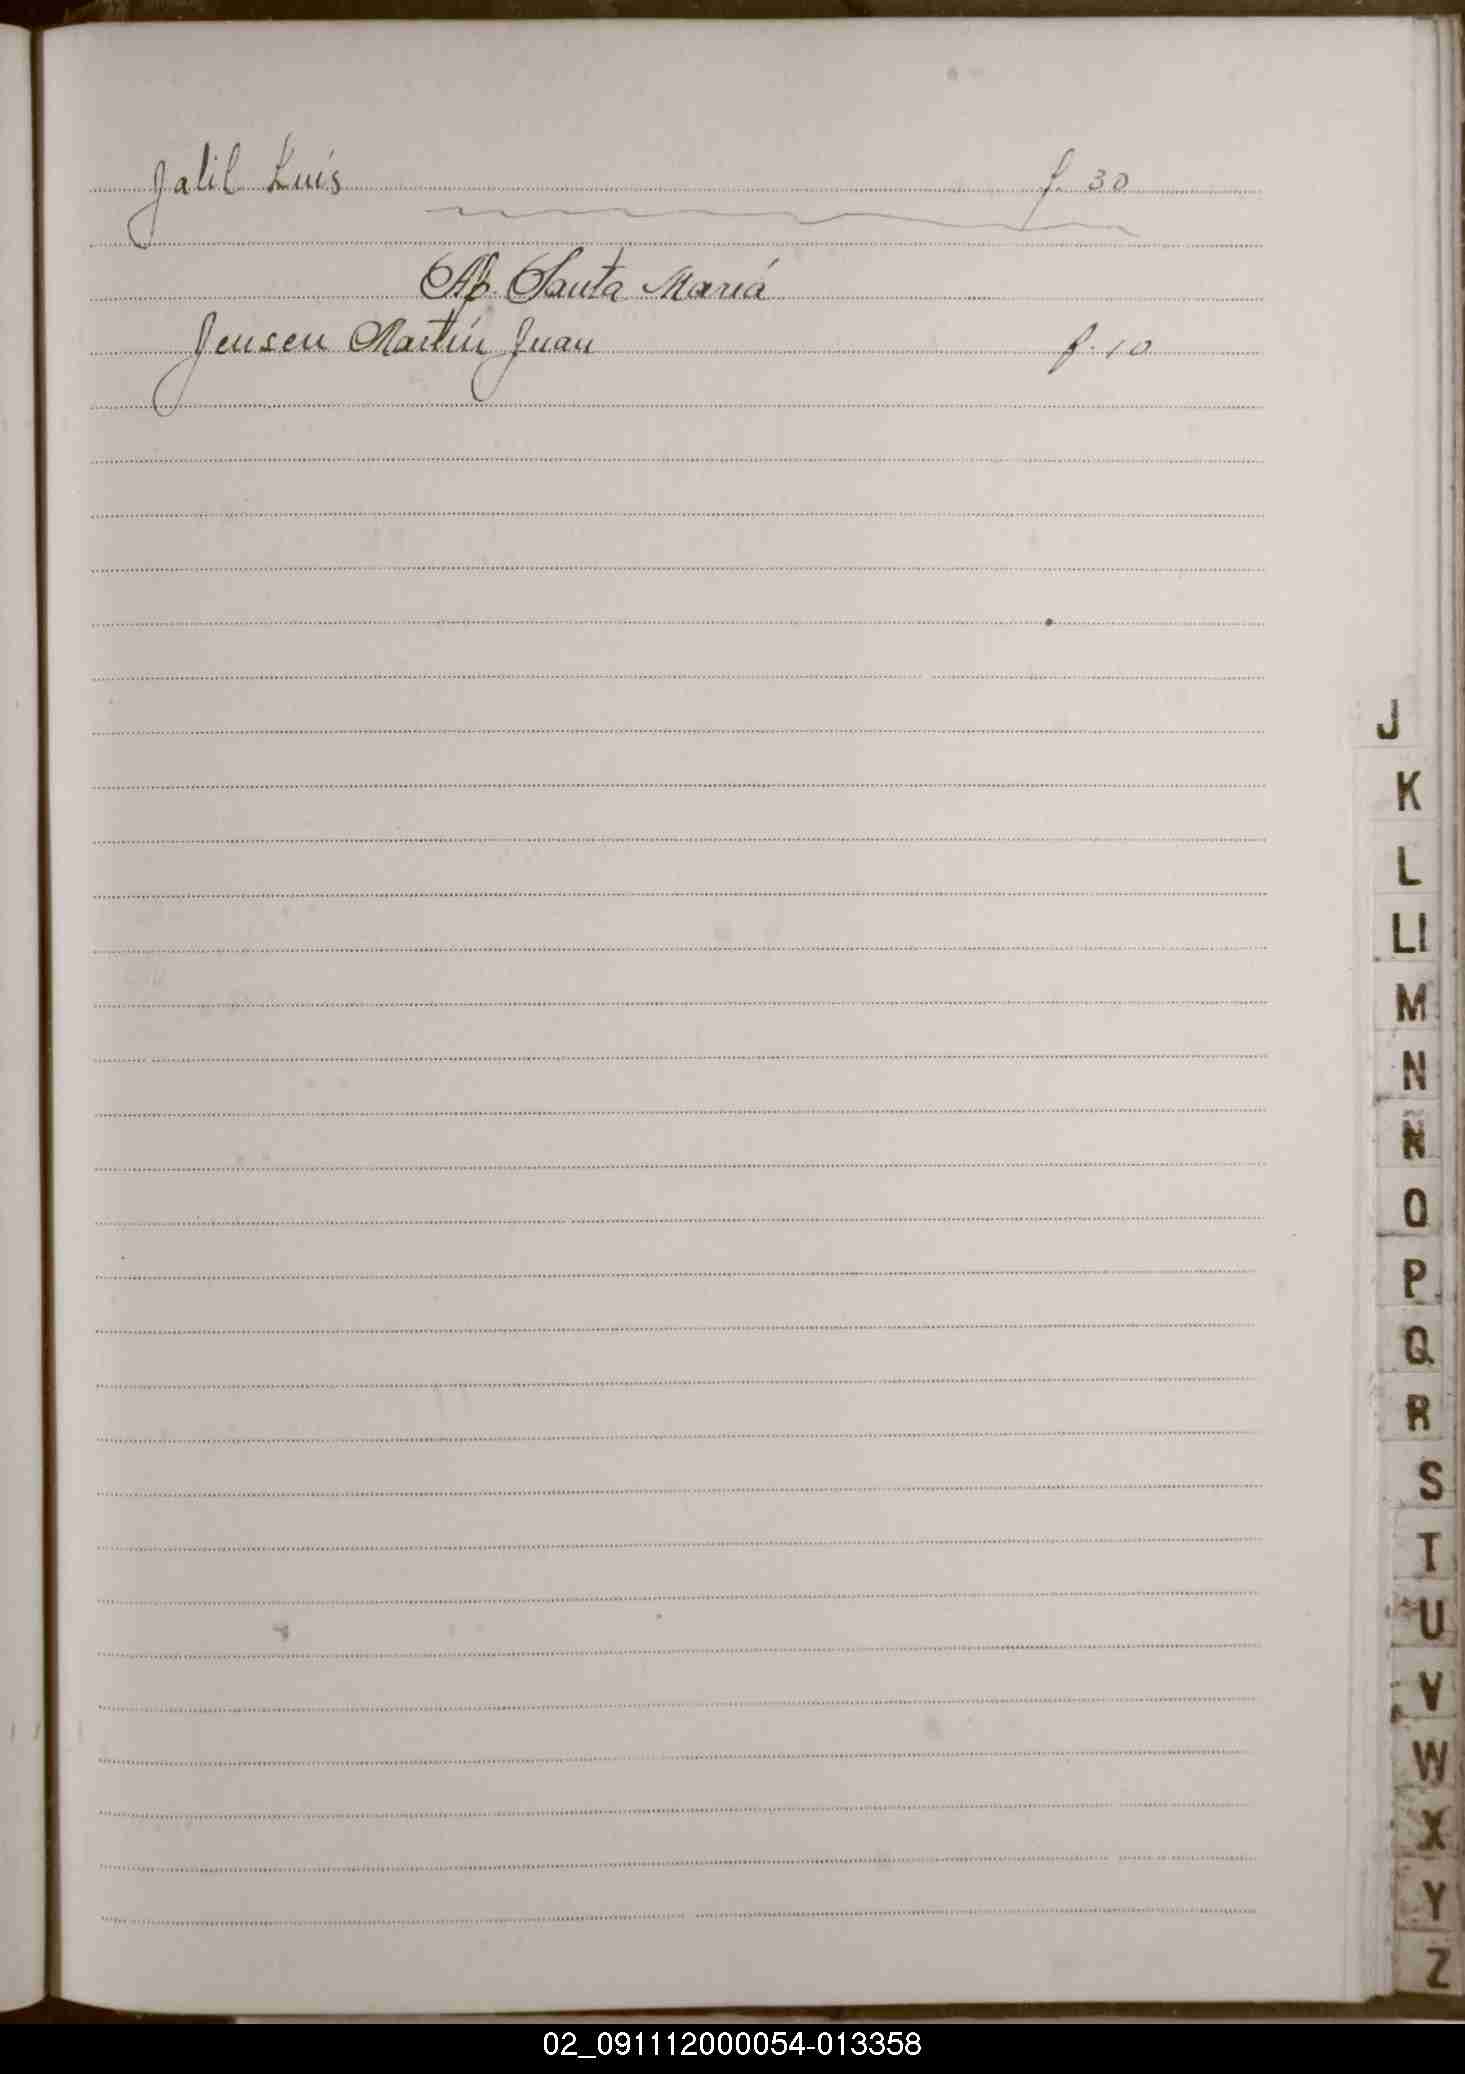 Jalil Luis f. 30
Ap. Santa Mariá
Jensen Martín Juan f. 10
J
K
L
Ll
M
N
Ñ
O
P
Q
R
S
T
U
V
W
X
Y
Z
02_091112000054-013358